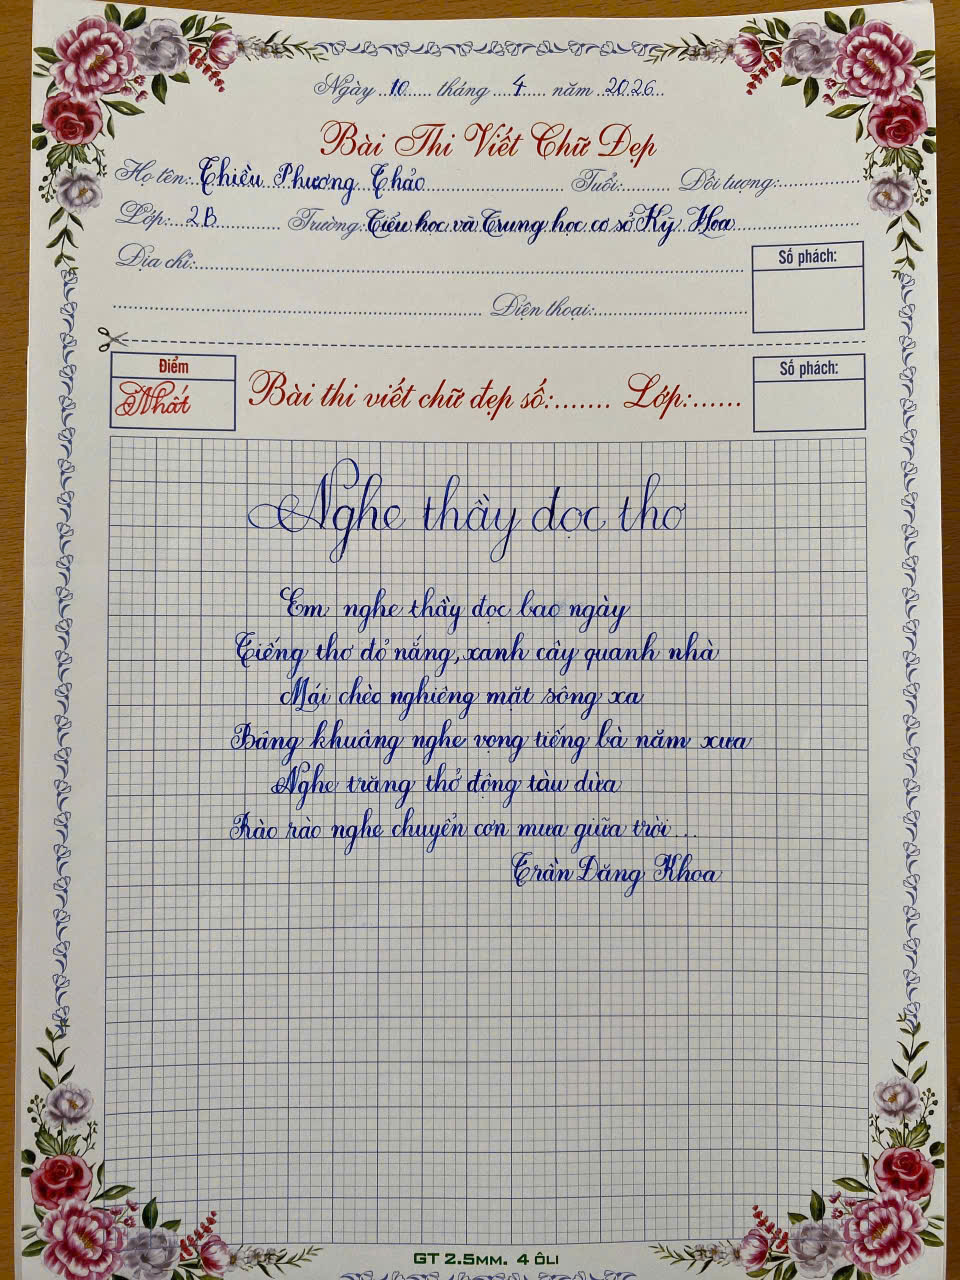 Ngày 10 tháng 4 năm 2026
Bài Thi Viết Chữ Đẹp
Họ tên: Thiều Phương Thảo Tuổi: Đối tượng:
Lớp: 2B Trường: Tiểu học và Trung học cơ sở Kỳ Hoa
Địa chỉ:
Số phách:
Điện thoại:
Điểm
Nhất
Bài thi viết chữ đẹp số: Lớp:
Số phách:
Nghe thầy đọc thơ
Em nghe thầy đọc bao ngày
Tiếng thơ đỏ nắng, xanh cây quanh nhà
Mái chèo nghiêng mặt sông xa
Bâng khuâng nghe vọng tiếng bà năm xưa
Nghe trăng thở động tàu dừa
Rào rào nghe chuyển cơn mưa giữa trời...
Trần Đăng Khoa
GT 2.5MM. 4 ÔLI